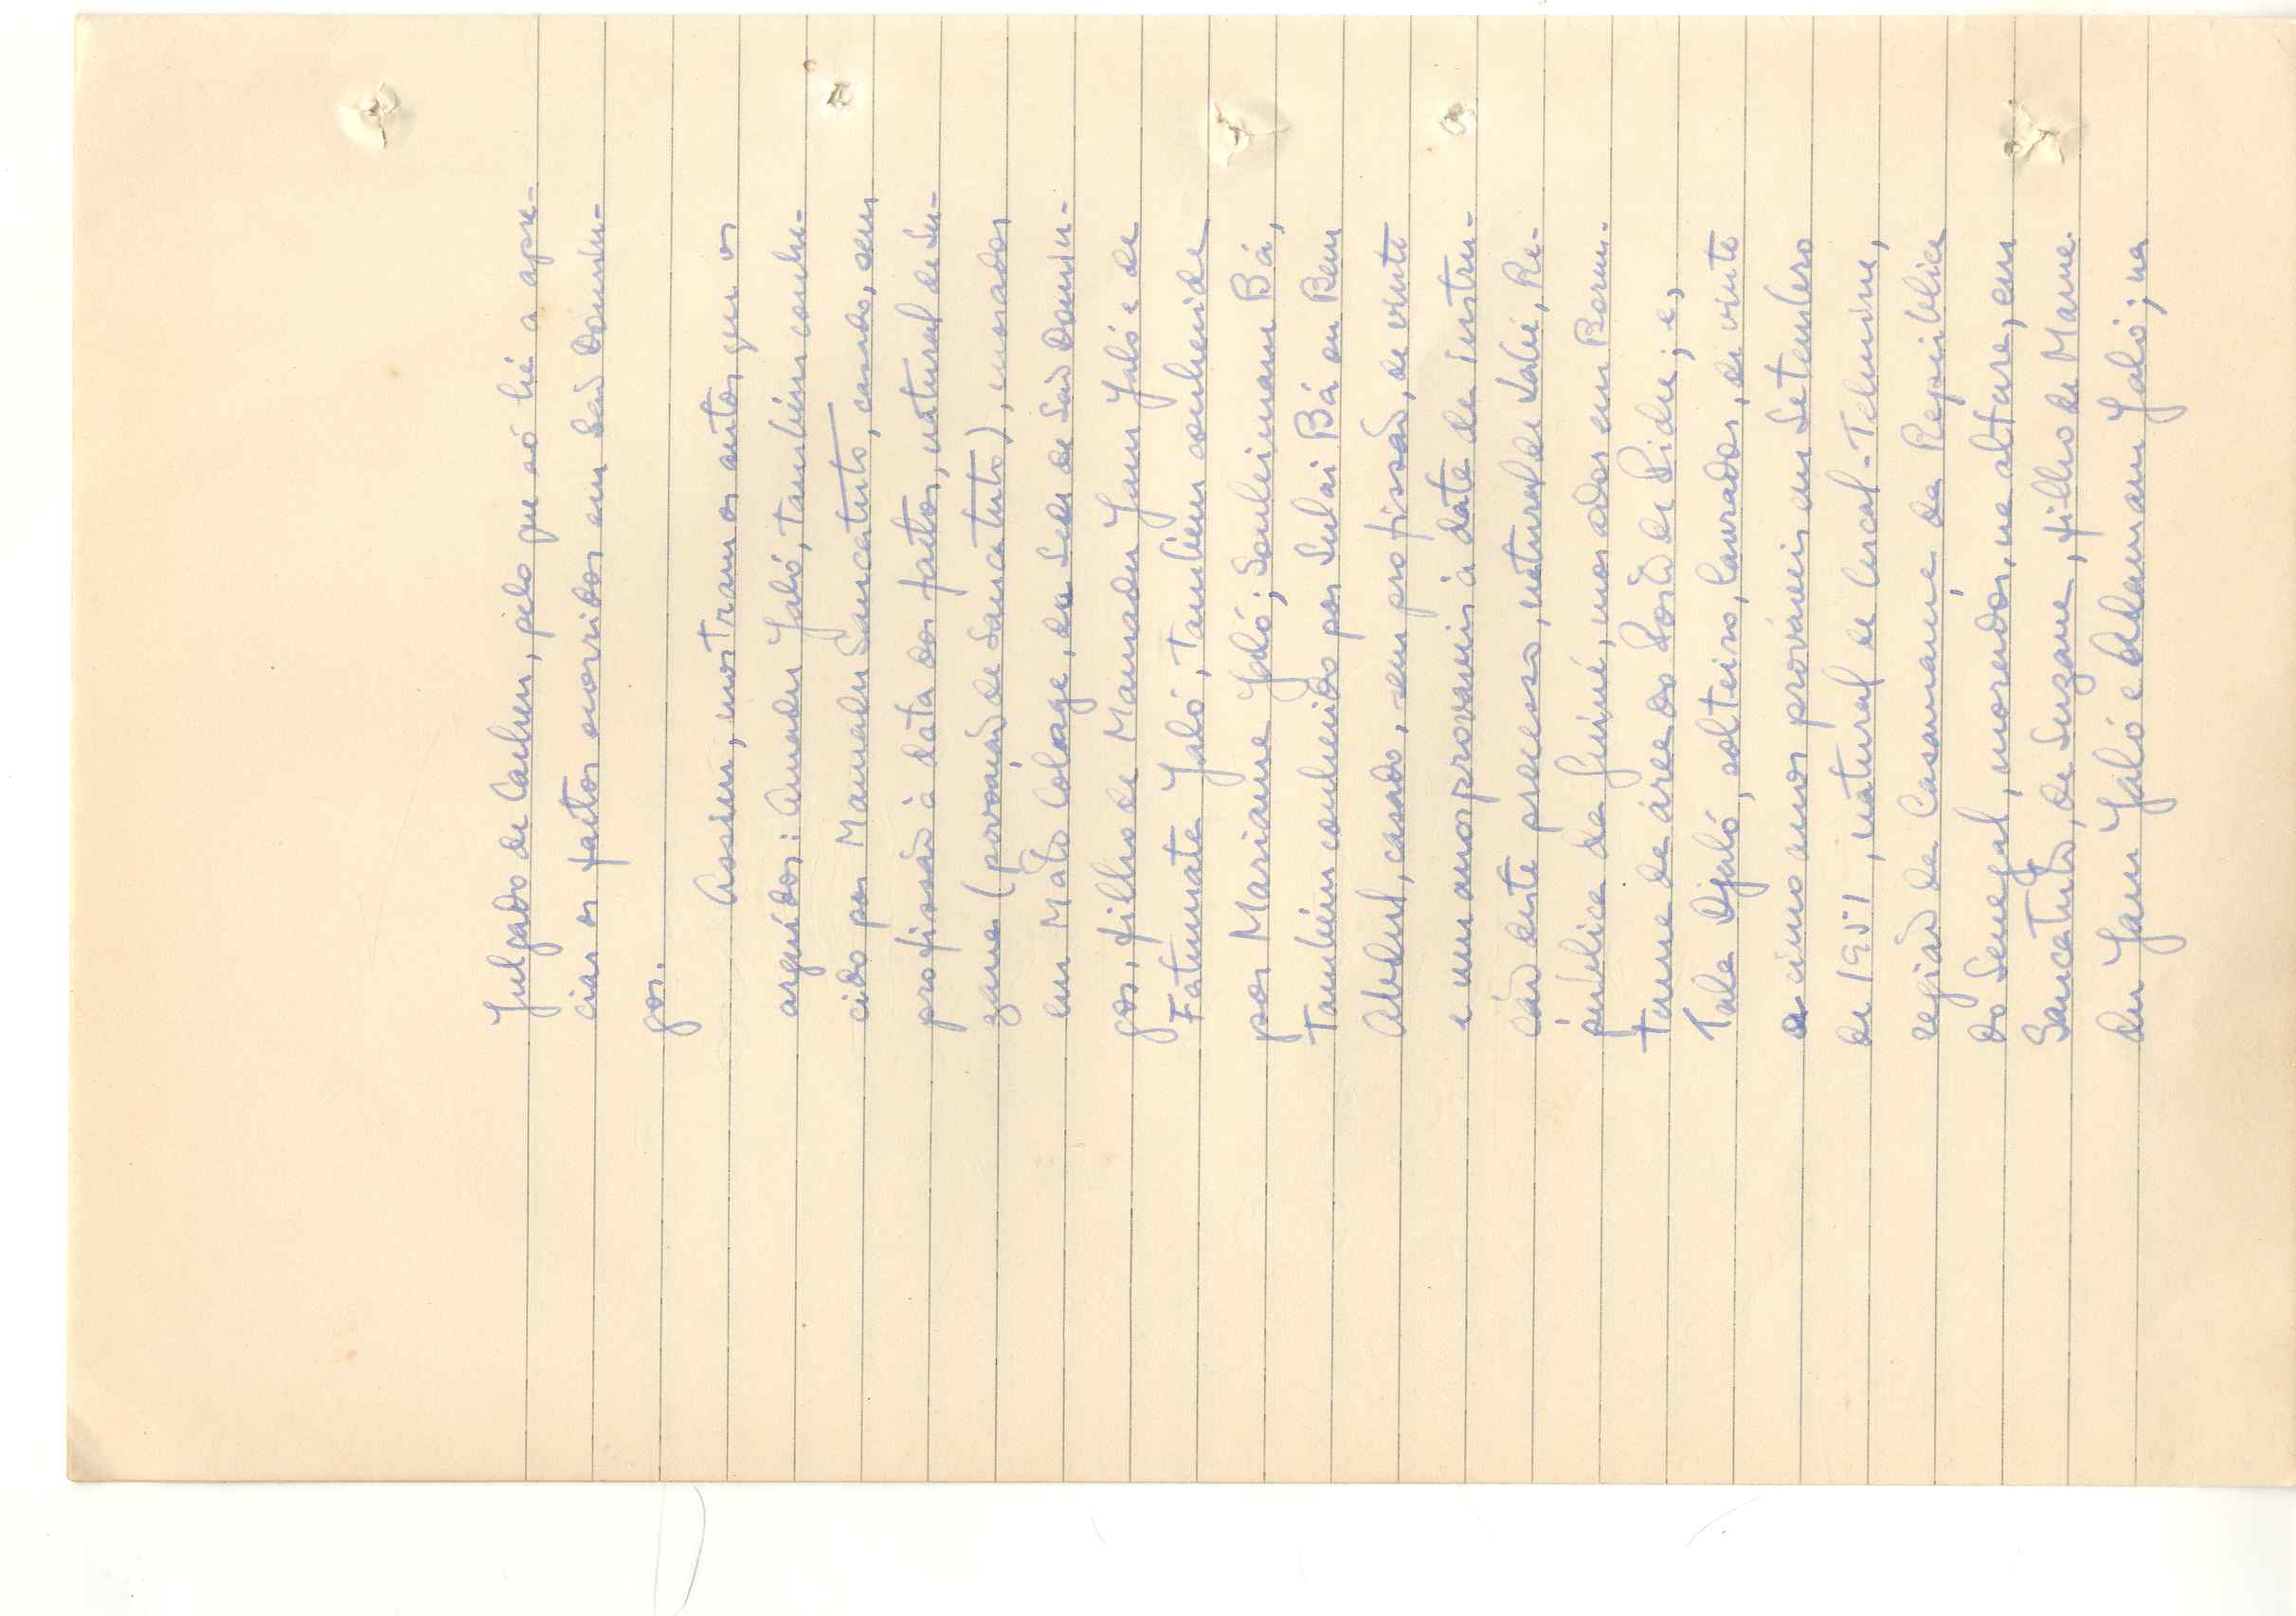 Julgado de Cacheu, pelo que só há a apre-
ciar os factos ocorridos em São Domin-
gos.
Assim, mostram os autos que os
arguidos: Amadu Jaló, também conhe-
cido por Mamadu Sancatuto, casado, sem
profissão à data dos factos, natural de Su-
zana (povoação de Sancatuto), morador
em Mato Colorge, da Sede de São Domin-
gos, filho de Mamadu Jam Jaló e de
Fatumata Jaló, também conhecida
por Mariama Jaló; Souleimane Bá,
também conhecido por Sulai Bá ou Bem
Abdul, casado, sem profissão, de vinte
e um anos prováveis à data da instru-
ção deste processo, natural de Labé, Re-
pública da Guiné, morador em Barim-
tume da área do Posto de Bidu; e,
Tala Djaló, solteiro, lavrador, de vinte
e cinco anos prováveis em Setembro
de 1951, natural de Cuscal-Telumine,
região de Casamança da República
do Senegal, morador, na altura, em
Sancatuto, de Suzana, filho de Mama-
du Jam Jaló e Adamam Jaló; na